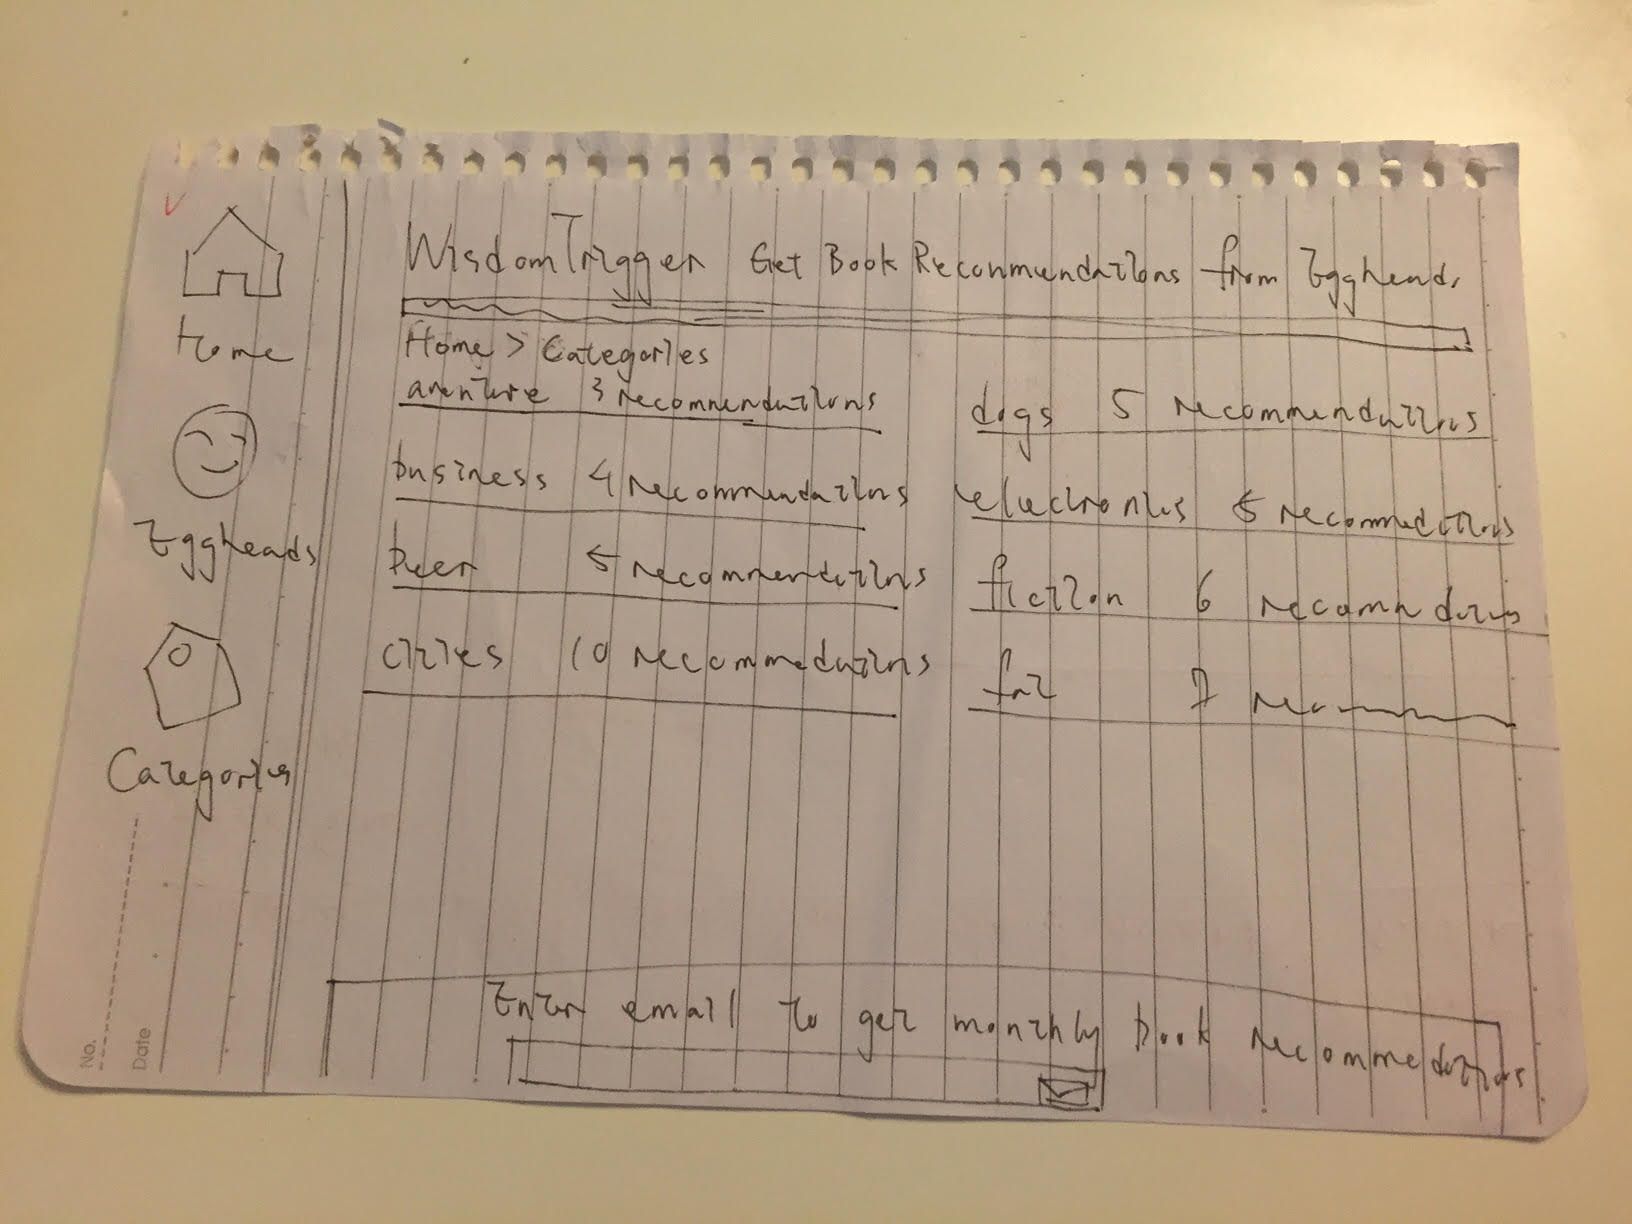 WisdomTrigger Get Book Reconmendations from Eggheads
Home > Categories
aventure 3 recommendations
business 4 recommendations
beer 5 recommendations
cities 10 recommedations
dogs 5 recommendations
electronics 5 recommedations
fiction 6
7
Home
Eggheads
Categories
Enter email to get monthly book recommedations
No.
Date